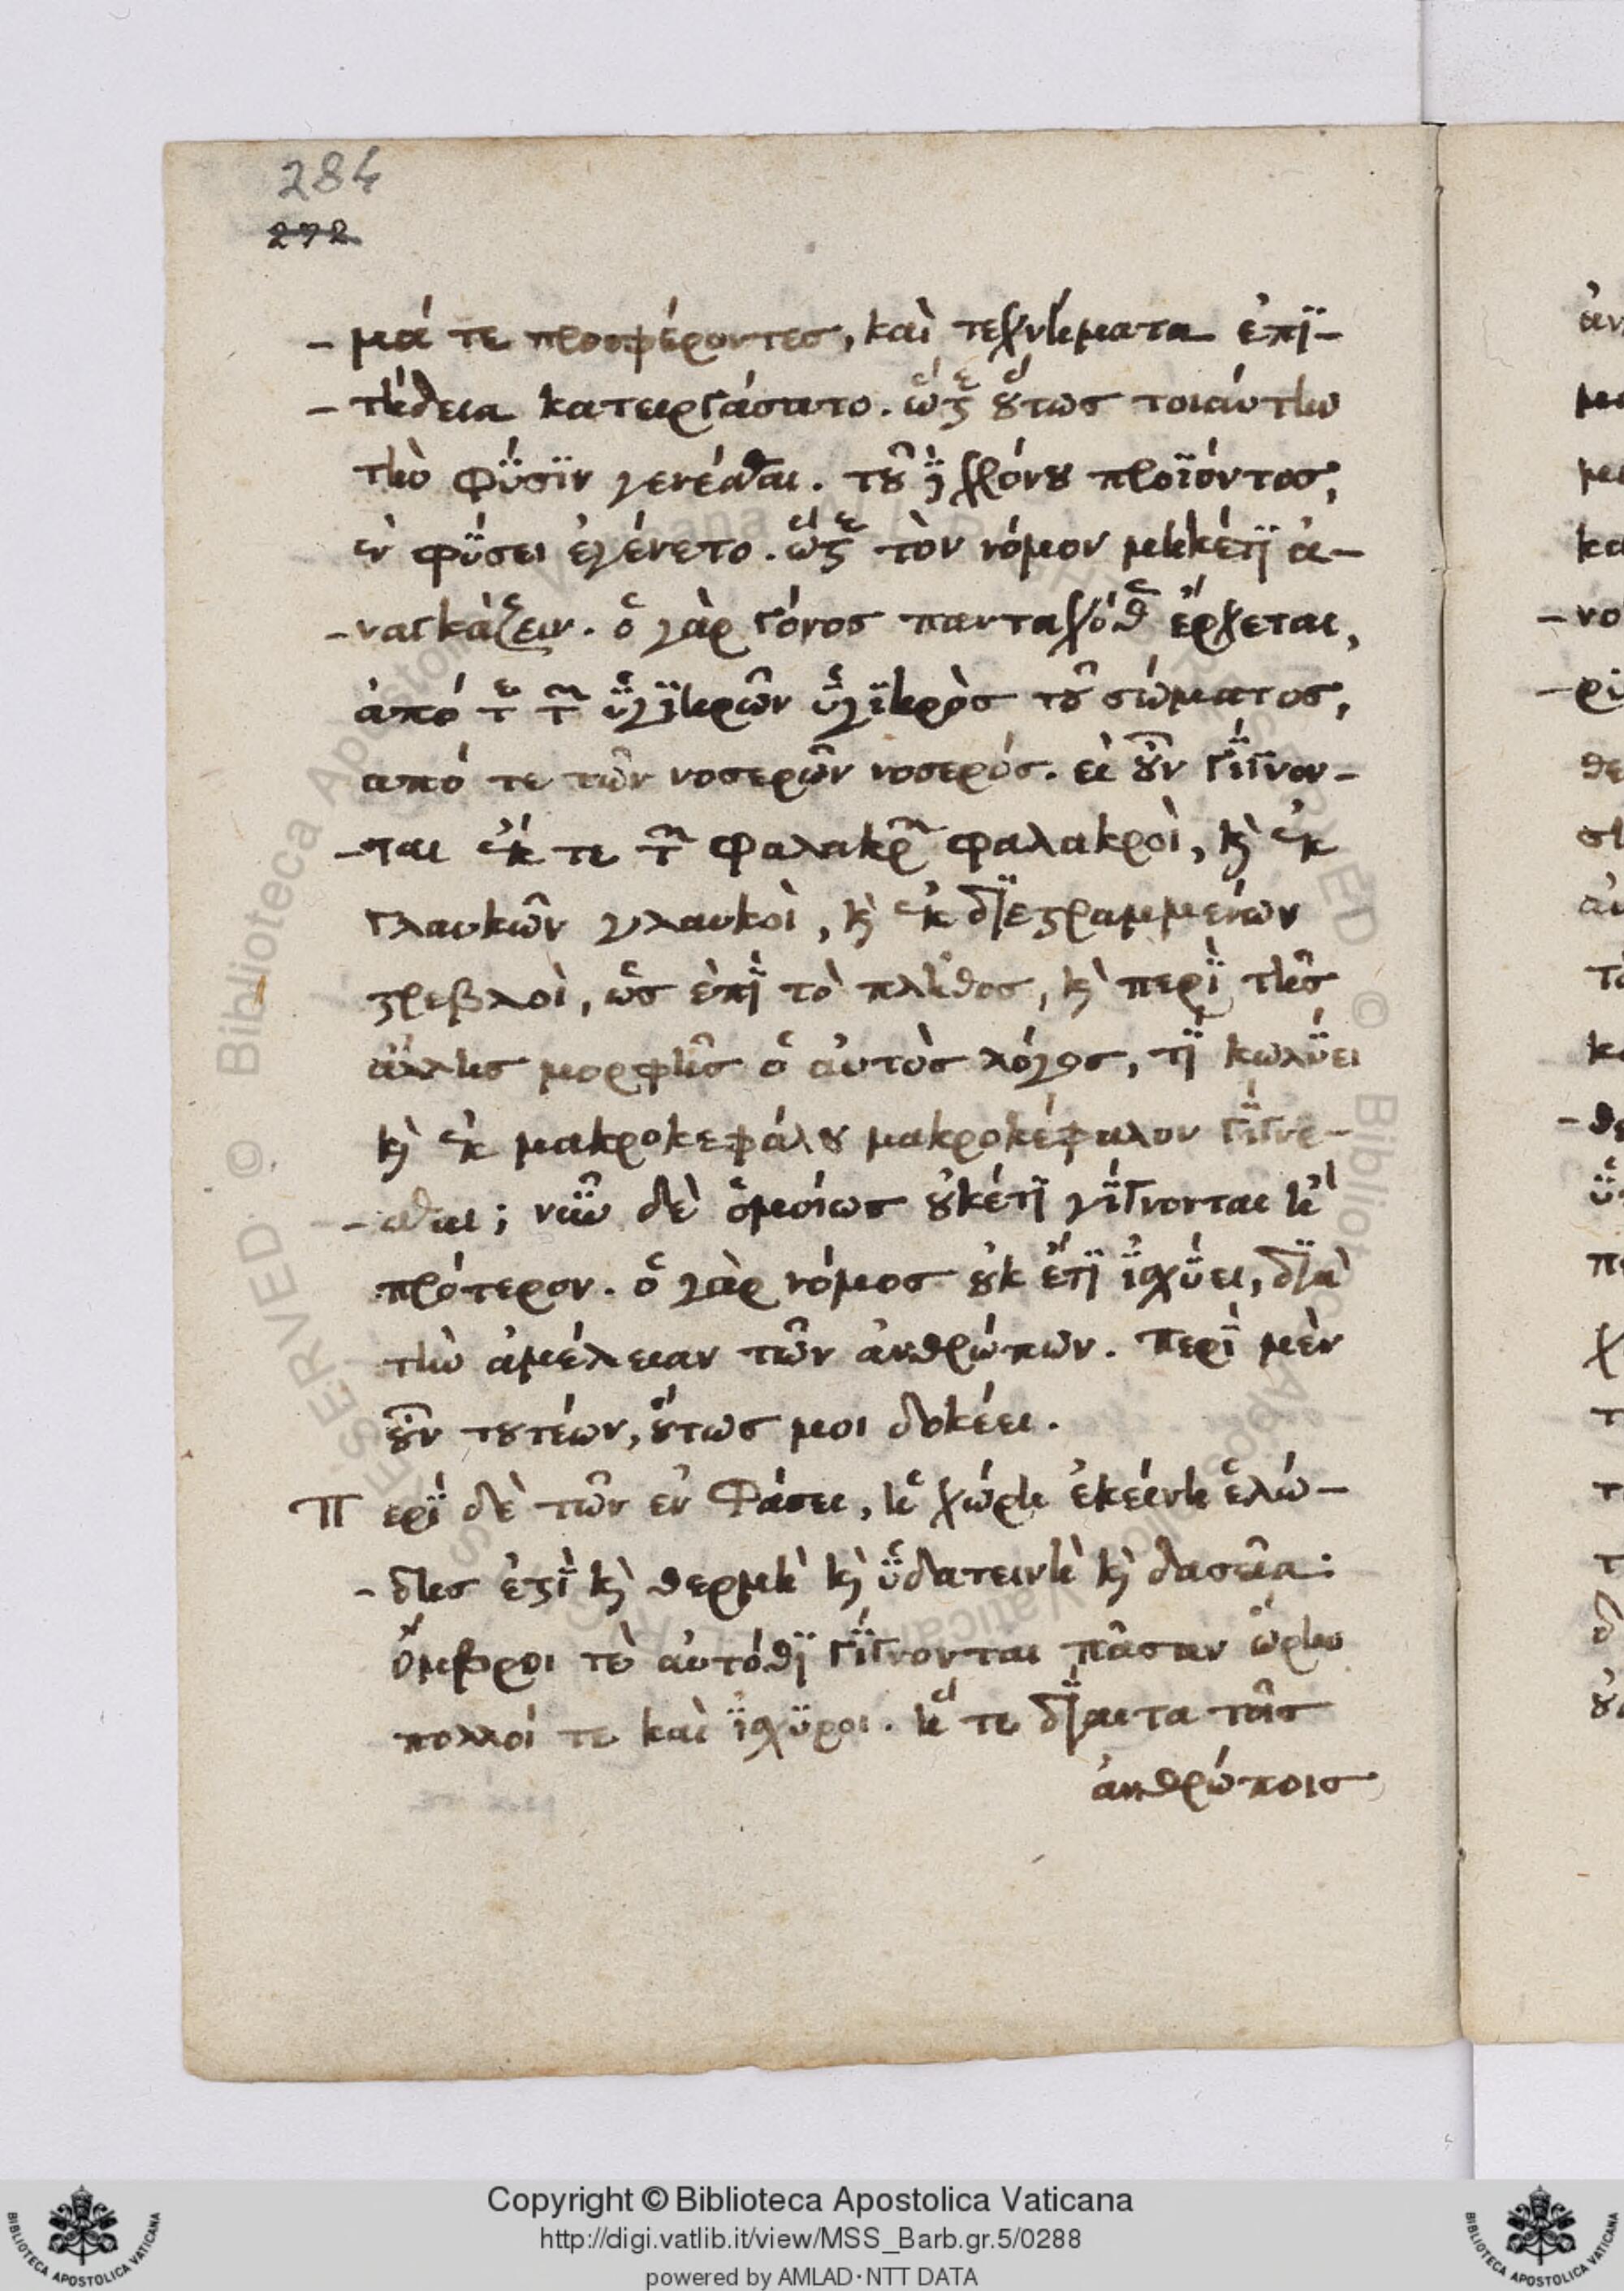 284
272
-μά τε προσφέροντες, καὶ τεχνήματα ἐπϊ-
-τήδεια κατειργάσατο. ὥστε οὕτως τοιαύτην
τὴν φΰσϊν γενέσθαι. τοῦ δὲ χρόνου προϊόντος,
ἐν φΰσει ἐγένετο. ὥστε τὸν νόμον μηκέτϊ ἀ-
-ναγκάζειν. ὁ γὰρ γόνος πανταχόθεν ἔρχεται,
ἀπό τε τῶν ὑγϊηρῶν ὑγϊηρὸς τοῦ σώματος,
ἀπό τε τῶν νοσερῶν νοσερός. εἰ οὖν γίγνον-
-ται ἔκ τε τῶν φαλακρῶν φαλακροὶ, καὶ ἐκ
γλαυκῶν γλαυκοὶ, καὶ ἐκ διεστραμμένων
στρεβλοὶ, ὡς ἐπῒ τὸ πλῆθος, καὶ περῒ τῆς
ἄλλης μορφῆς ὁ αὐτὸς λόγος, τΐ κωλΰει
καὶ ἐκ μακροκεφάλου μακροκέφαλον γίγνε-
-σθαι; νῦν δὲ ὁμοίως οὐκέτϊ γίγνονται ἢ
πρότερον. ὁ γὰρ νόμος οὐκ ἔτϊ ἰσχΰει, διὰ
τὴν ἀμέλειαν τῶν ἀνθρώπων. Περῒ μὲν
οὖν τουτέων, οὕτως μοι δοκέει.
Περΐ δὲ τῶν ἐν Φάσει, ἡ χώρη ἐκείνη ἑλώ-
-δης ἐστῒ καὶ θερμὴ καὶ ὑδατεινὴ καὶ δασεῖα:
Ὄμβροι τὲ αὐτόθϊ γίγνονται πᾶσαν ὥρην
πολλοί τε καὶ ἰσχϋροι. ἥ τε δίαιτα τοῖς
ἀνθρώποις
Copyright © Biblioteca Apostolica Vaticana
http://digi.vatlib.it/view/MSS_Barb.gr.5/0288
powered by AMLAD·NTT DATA